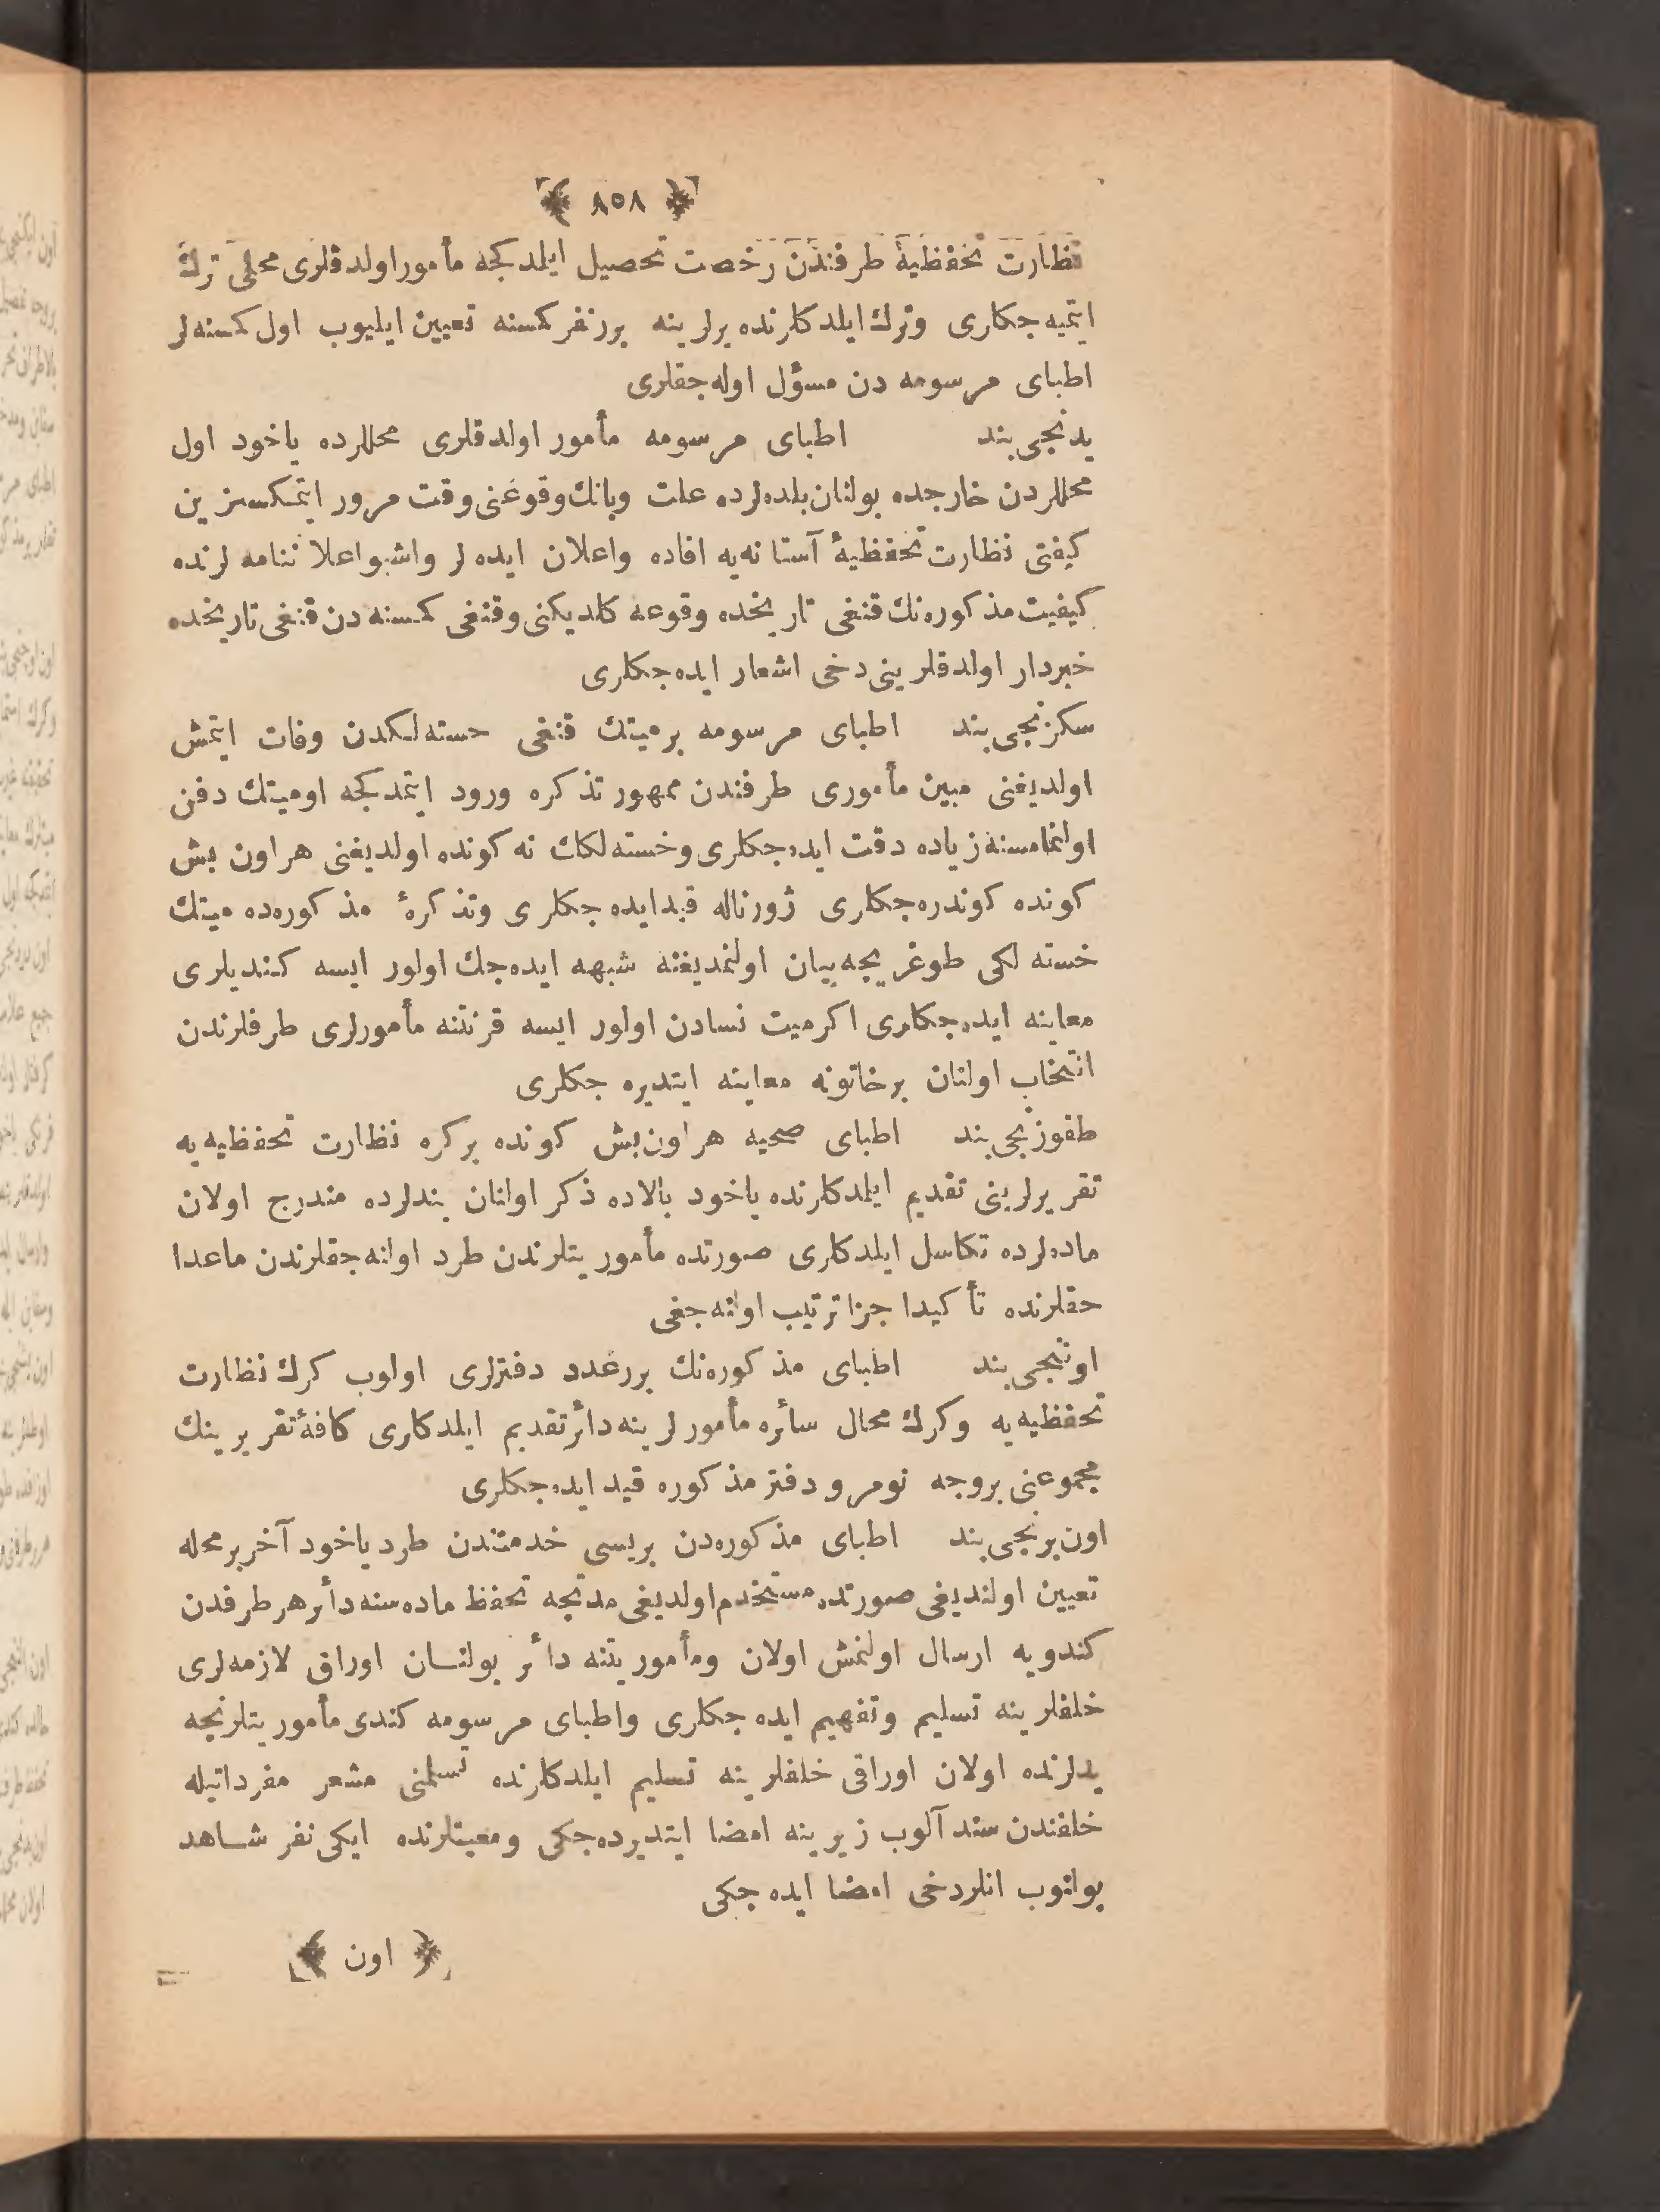 ﴿ ٨٥٨ ﴾
نظارت تحفظیهٔ طرفندن رخصت تحصیل ایلدکجه مأمور اولدقلری محلی ترك
ایتمیه جکلری وترك ایلدکلرنده یرلرینه بررنفر کمسنه تعیین ایلیوب اول کمسنه لر
اطبای مرسومه دن مسؤل اوله جقلری
یدنجی بند اطبای مرسومه مأمور اولدقلری محللرده یاخود اول
محللردن خارجده بولنان بلده لرده علت وبانك وقوعنی وقت مرور ایتمکسزین
کیفتی نظارت تحفظیهٔ آستانه یه افاده واعلان ایده لر واشبو اعلاننامه لرنده
کیفیت مذکوره نك قنغی تاریخده وقوعه کلدیکنی وقنغی کمسنه دن قنغی تاریخده
خبردار اولدقلرینی دخی اشعار ایده جکلری
سکزنجی بند اطبای مرسومه برمیتك قنغی خسته لکدن وفات ایتمش
اولدیغنی مبین مأموری طرفندن ممهور تذکره ورود ایتمدکجه اومیتك دفن
اولنمامسنه زیاده دقت ایده جکلری وخسته لکك نه کونده اولدیغنی هراون بش
کونده کوندره جکلری ژورناله قید ایده جکلری وتذکرهٔ مذکوره ده میتك
خسته لکی طوغریجه بیان اولنمدیغنه شبهه ایده جك اولور ایسه کندیلری
معاینه ایده جکلری اکرمیت نسادن اولور ایسه قرنتنه مأمورلری طرفلرندن
انتخاب اولنان برخاتونه معاینه ایتدیره جکلری
طقوزنجی بند اطبای صحیه هراون بش کونده برکره نظارت تحفظیه یه
تقریرلرینی تقدیم ایلدکلرنده یاخود بالاده ذکر اولنان بندلرده مندرج اولان
ماده لرده تکاسل ایلدکلری صورتده مأموریتلرندن طرد اولنه جقلرندن ماعدا
حقلرنده تأکیدا جزا ترتیب اولنه جغی
اوننجی بند اطبای مذکوره نك بررعدد دفترلری اولوب کرك نظارت
تحفظیه یه وکرك محال سائره مأمورلرینه دائر تقدیم ایلدکلری کافهٔ تقریرینك
مجموعنی بروجه نومرو دفتر مذکوره قید ایده جکلری
اون برنجی بند اطبای مذکوره دن بریسی خدمتندن طرد یاخود آخر برمحله
تعیین اولندیغی صورتده مستخدم اولدیغی مدتجه تحفظ ماده سنه دائر هرطرفدن
کندویه ارسال اولنمش اولان ومأموریتنه دائر بولنسان اوراق لازمه لری
خلفلرینه تسلیم وتفهیم ایده جکلری واطبای مرسومه کندی مأموریتلرنجه
یدلرنده اولان اوراقی خلفلرینه تسلیم ایلدکلرنده تسلمنی مشعر مفرداتیله
خلفندن سند آلوب زیرینه امضا ایتدیرده جکی ومعیتلرنده ایکی نفر شاهد
بولنوب انلردخی امضا ایده جکی
﴿ اون ﴾